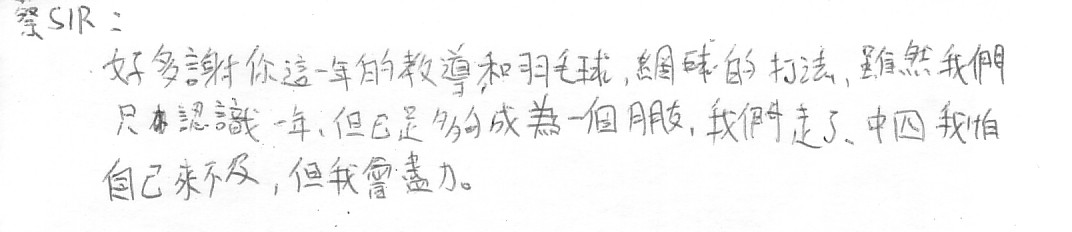 蔡SIR：
好多謝你這一年的教導和羽毛球，網球的打法，雖然我們
只認識一年，但已足夠成為一個朋友，我們走了、中四我怕
自己來不及，但我會盡力。